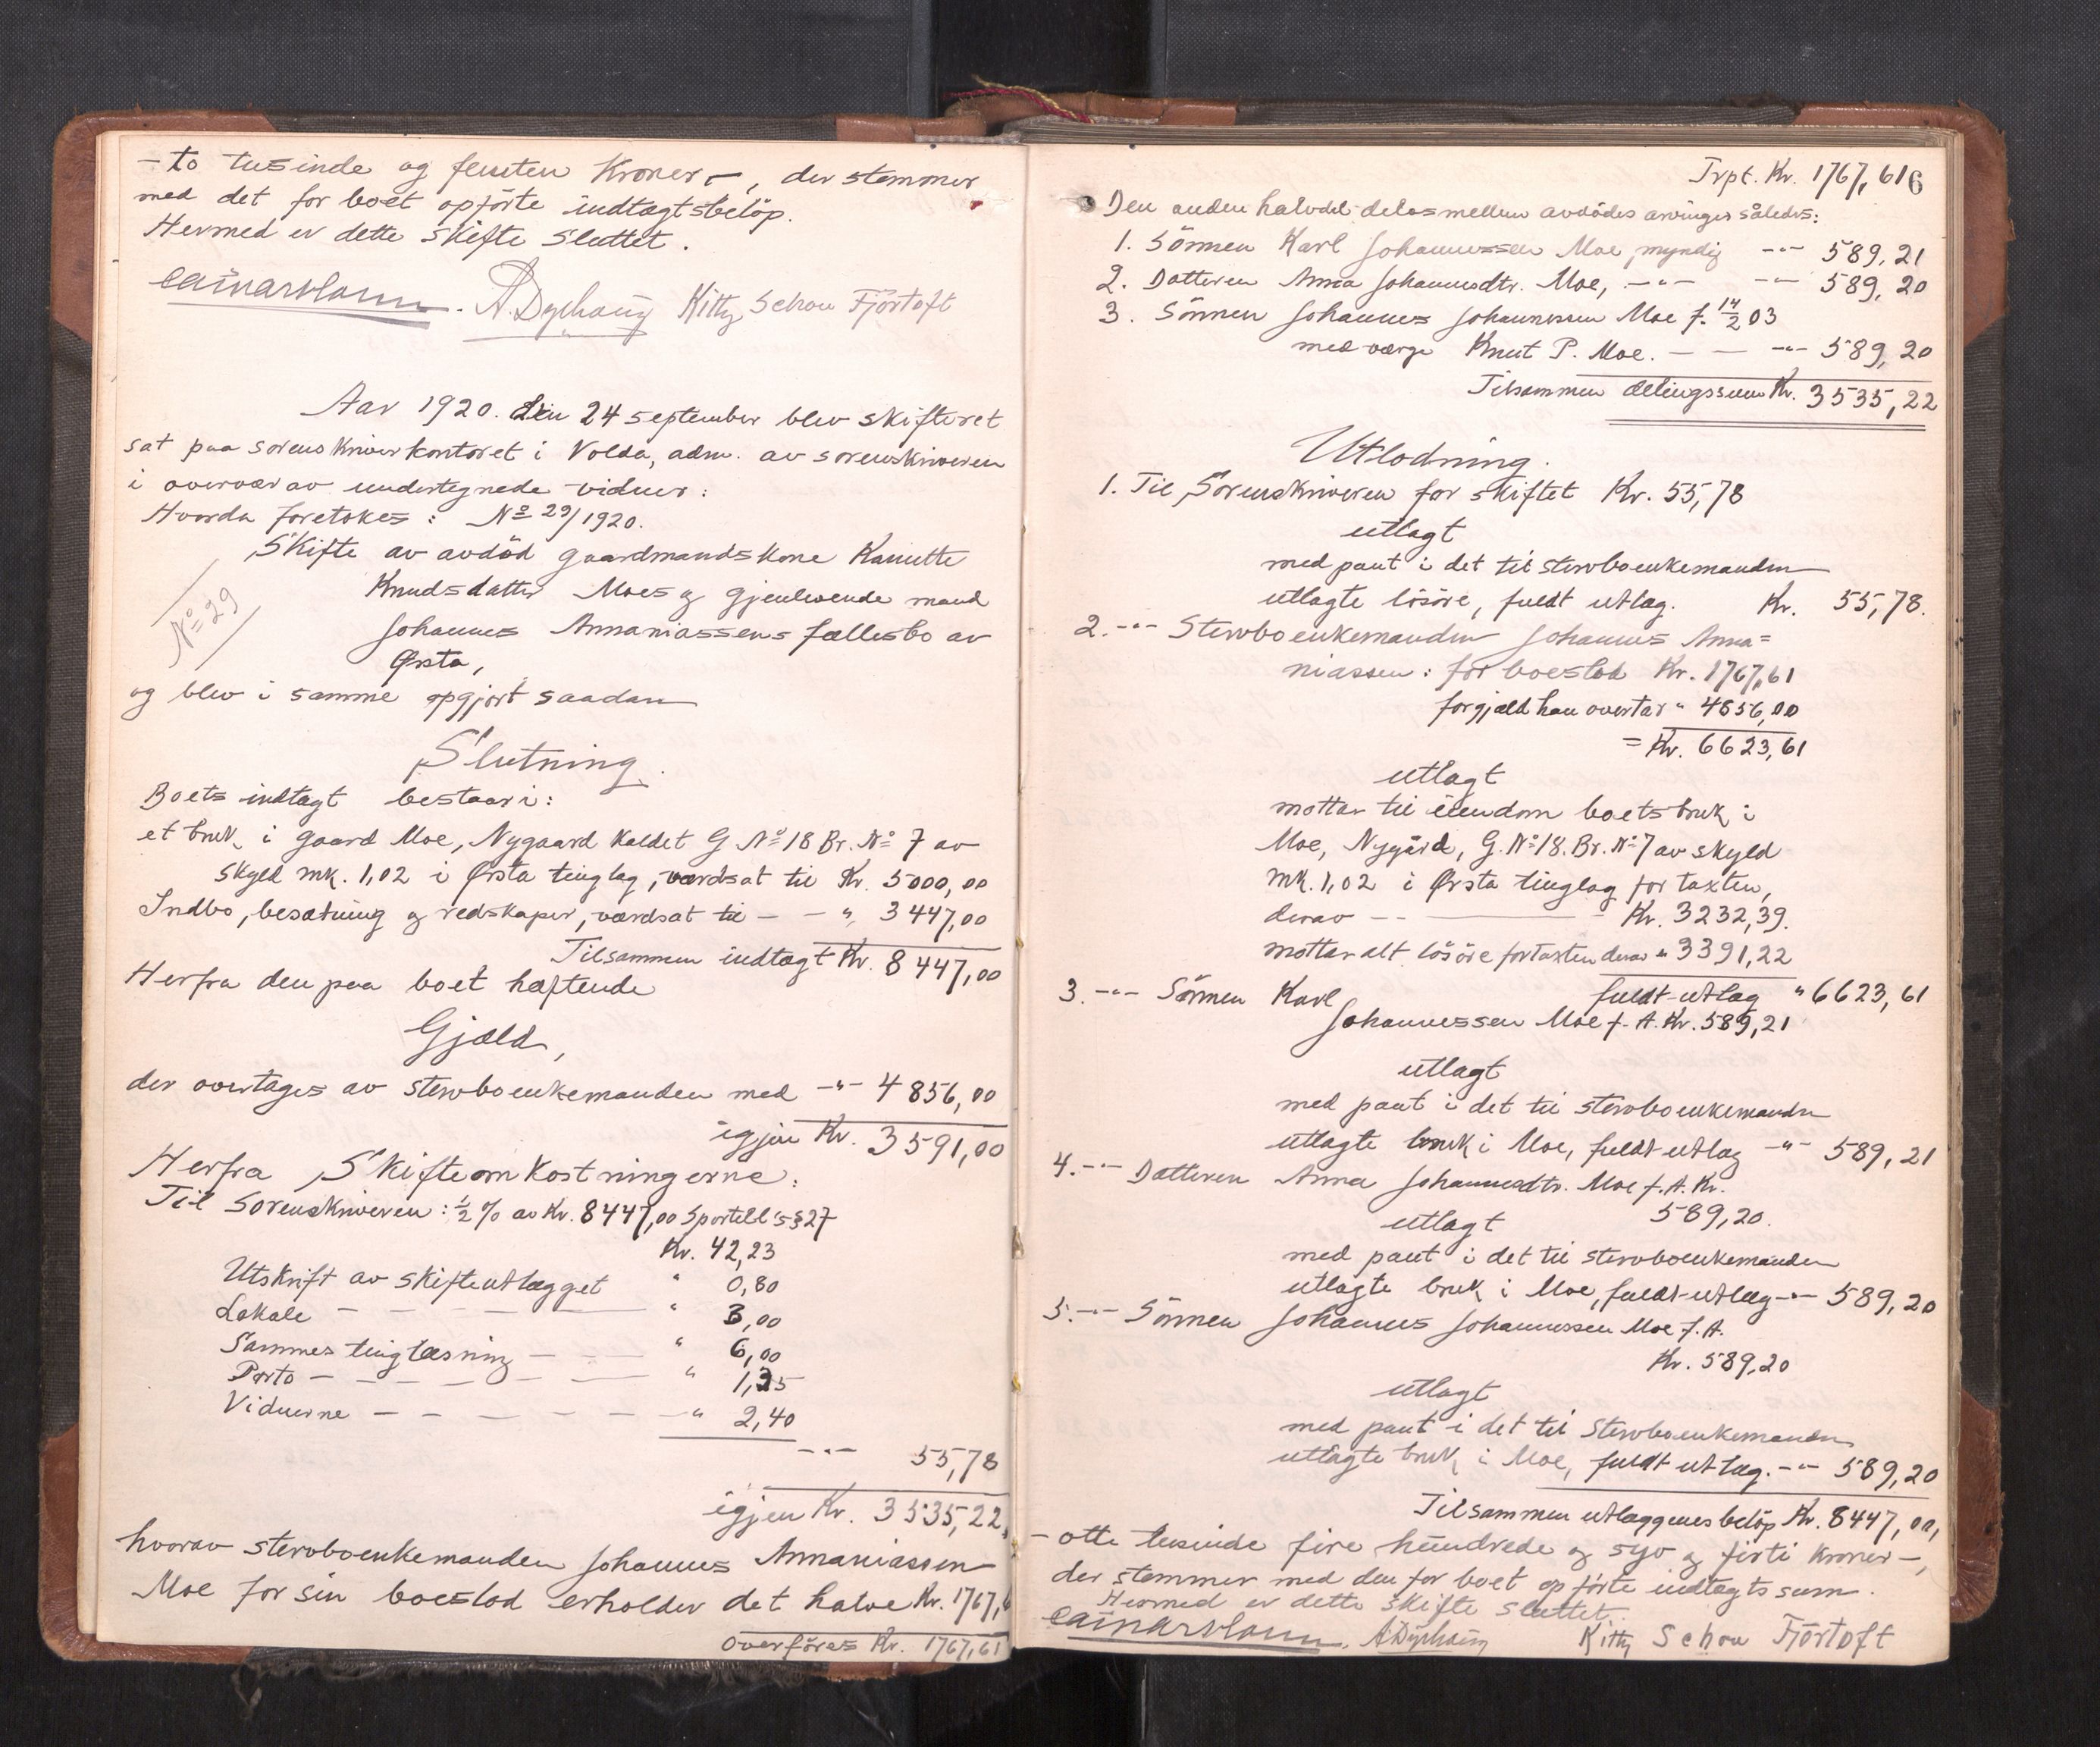 - to tusinde og femten Kroner -, der stemmer
med det for boet opførte indtægtsbeløp.
Hermed er dette skifte sluttet.
Kitty Schou Fjörtoft
Aar 1920. Den 24 september blev skifteret
sat paa sorenskriverkontoret i Volda, adm. av sorenskriveren
i overvær av undertegnede vidner:
Hvorda foretokes: No 29/1920.
Skifte av avdöd gaardmandskone Kanutte
Knudsdatter Moes og gjenlevende mand
Johannes Annaniassens fællesbo av
Ørsta,
No 29
og blev i samme opgjort saadan
Slutning.
Boets indtægt bestaar i:
et bruk i gaard Moe, Nygaard kaldet G No 18 Br. No 7 av
skyld mk. 1,02 i Ørsta tinglag, værdsat til Kr. 5000,00
Indbo, besætning og redskaper, værdsat til - - " 3447,00
Tilsammen indtægt Kr. 8447,00
Herfra den paa boet heftende
Gjæld,
der overtages av stervboenkemanden med -"- 4856,00
igjen Kr. 3591,00
Herfra Skifteomkostningerne:
Til Sorenskriveren: ½ % av Kr. 8447,00 Sportell's § 27
Kr. 42,23
Utskrift av skifteutlægget " 0,80
Lokale - - - " 3,00
Sammes tinglæsning - - - " 6,00
Porto - - - - - " 1,35
Vidnerne - - - - - " 2,40
-"- 55,78
igjen Kr. 3535,22,
hvorav stervboenkemanden Johannes Annaniassen
Moe for sin boeslod erholder det halve Kr. 1767,6
Overföres Kr. 1767,61
Trpt. Kr. 1767,61
6
Den anden halvdel deles mellem avdödes arvinger således:
1. Sönnen Karl Johannessen Moe, myndig -"- 589,21
2. Datteren Anna Johannesdtr. Moe, -"- -"- 589,20
3. Sönnen Johannes Johannessen Moe f. 14/2 03
med værge Knut P. Moe. - - -"- 589,20
Tilsammen delingssum Kr. 3535,22
Utlodning.
1. Til Sorenskriveren for skiftet Kr. 55,78
utlagt
med pant i det til stervboenkemanden
utlagte lösöre, fuldt utlæg. Kr. 55,78.
2. -"- Stervboenkemanden Johannes Anna=
niassen: for boeslod Kr. 1767,61
for gjæld han overtar " 4856,00
= Kr. 6623,61
utlagt
mottar til eiendom boets bruk i
Moe, Nygård, G. No 18. Br. No 7 av skyld
mk. 1,02 i Ørsta tinglag for taxten,
derav - - - Kr. 3232,39.
mottar alt lösöre for taxten derav " 3391,22
fuldt utlæg " 6623,61
3. -"- Sönnen Karl
Johannessen Moe f. A. Kr. 589,21
utlagt
med pant i det til stervboenkemanden
utlagte bruk i Moe, fuldt utlæg -"- 589,21
4. -"- Datteren Anna Johannesdtr. Moe f. A. Kr.
589,20.
utlagt
med pant i det til stervboenkemanden
utlagte bruk i Moe, fuldt utlæg -"- 589,20
5. -"- Sönnen Johannes Johannessen Moe f. A.
Kr. 589,20
utlagt
med pant i det til stervboenkemanden
utlagte bruk i Moe, fuldt utlæg. -"- 589,20
Tilsammen utlæggenes belöp Kr. 8447,00,
- otte tusinde fire hundrede og syv og firti kroner -,
der stemmer med den for boet opförte indtægtssum.
Hermed er dette skifte sluttet.
Kitty Schou Fjörtoft